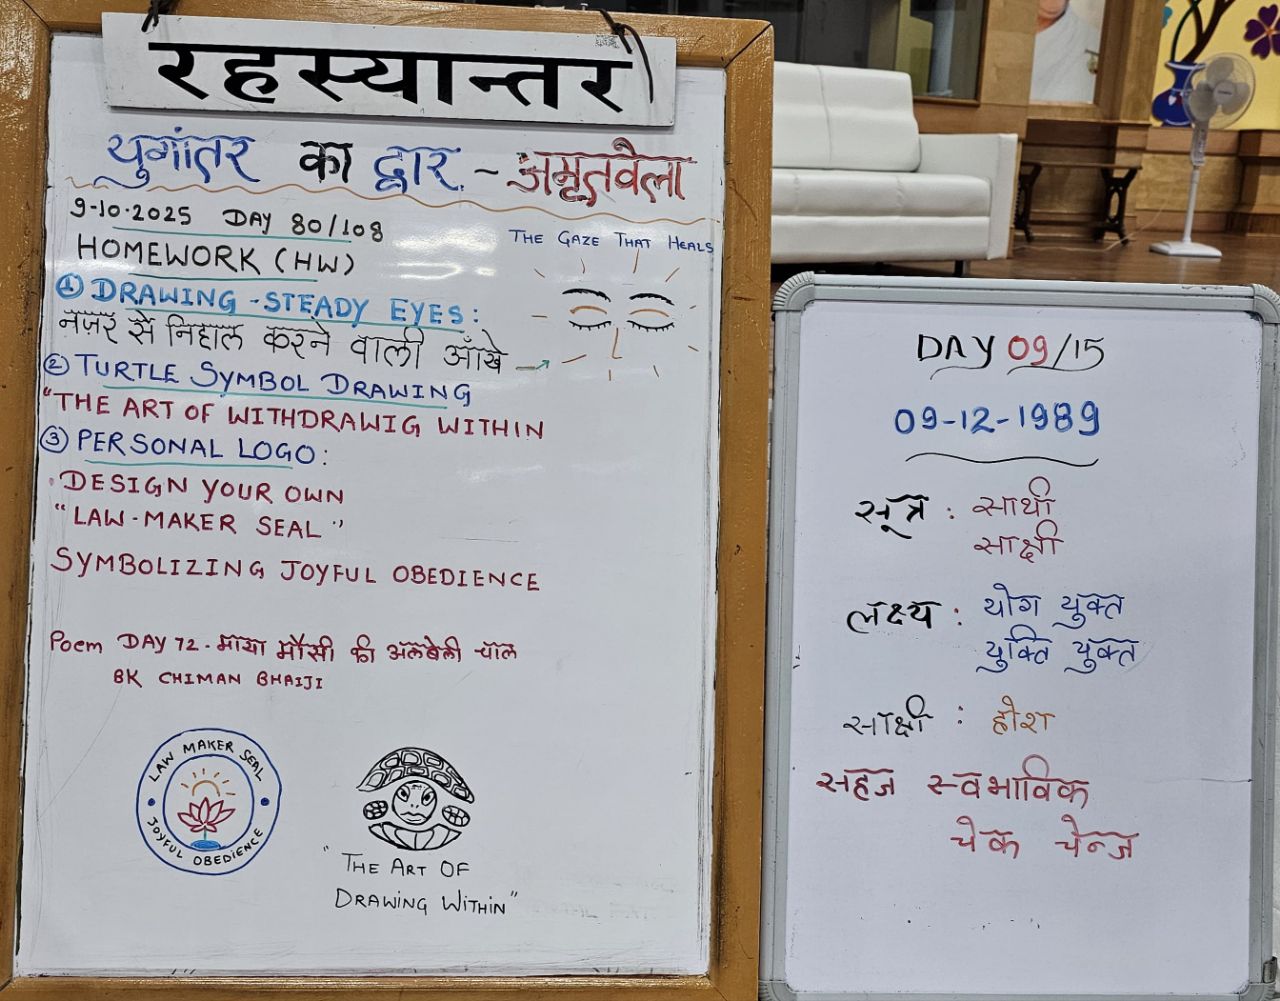 रहस्यान्तर
युगांतर का द्वार - अमृतवेला
9-10-2025 DAY 80/108
HOMEWORK (HW)
THE GAZE THAT HEALS
① DRAWING-STEADY EYES:
नज़र से निहाल करने वाली आँखे →
② TURTLE SYMBOL DRAWING
"THE ART OF WITHDRAWIG WITHIN
③ PERSONAL LOGO:
DESIGN YOUR OWN
"LAW-MAKER SEAL"
SYMBOLIZING JOYFUL OBEDIENCE
Poem DAY 72. माया मौसी की अलबेली चाल
BK CHIMAN BHAIJI
LAW MAKER SEAL
JOYFUL OBEDIENCE
"THE ART OF
DRAWING WITHIN"
DAY 09/15
09-12-1989
सूत्र : साथी
साक्षी
लक्ष्य : योग युक्त
युक्ति युक्त
साक्षी : होश
सहज स्वभाविक
चेक चेन्ज